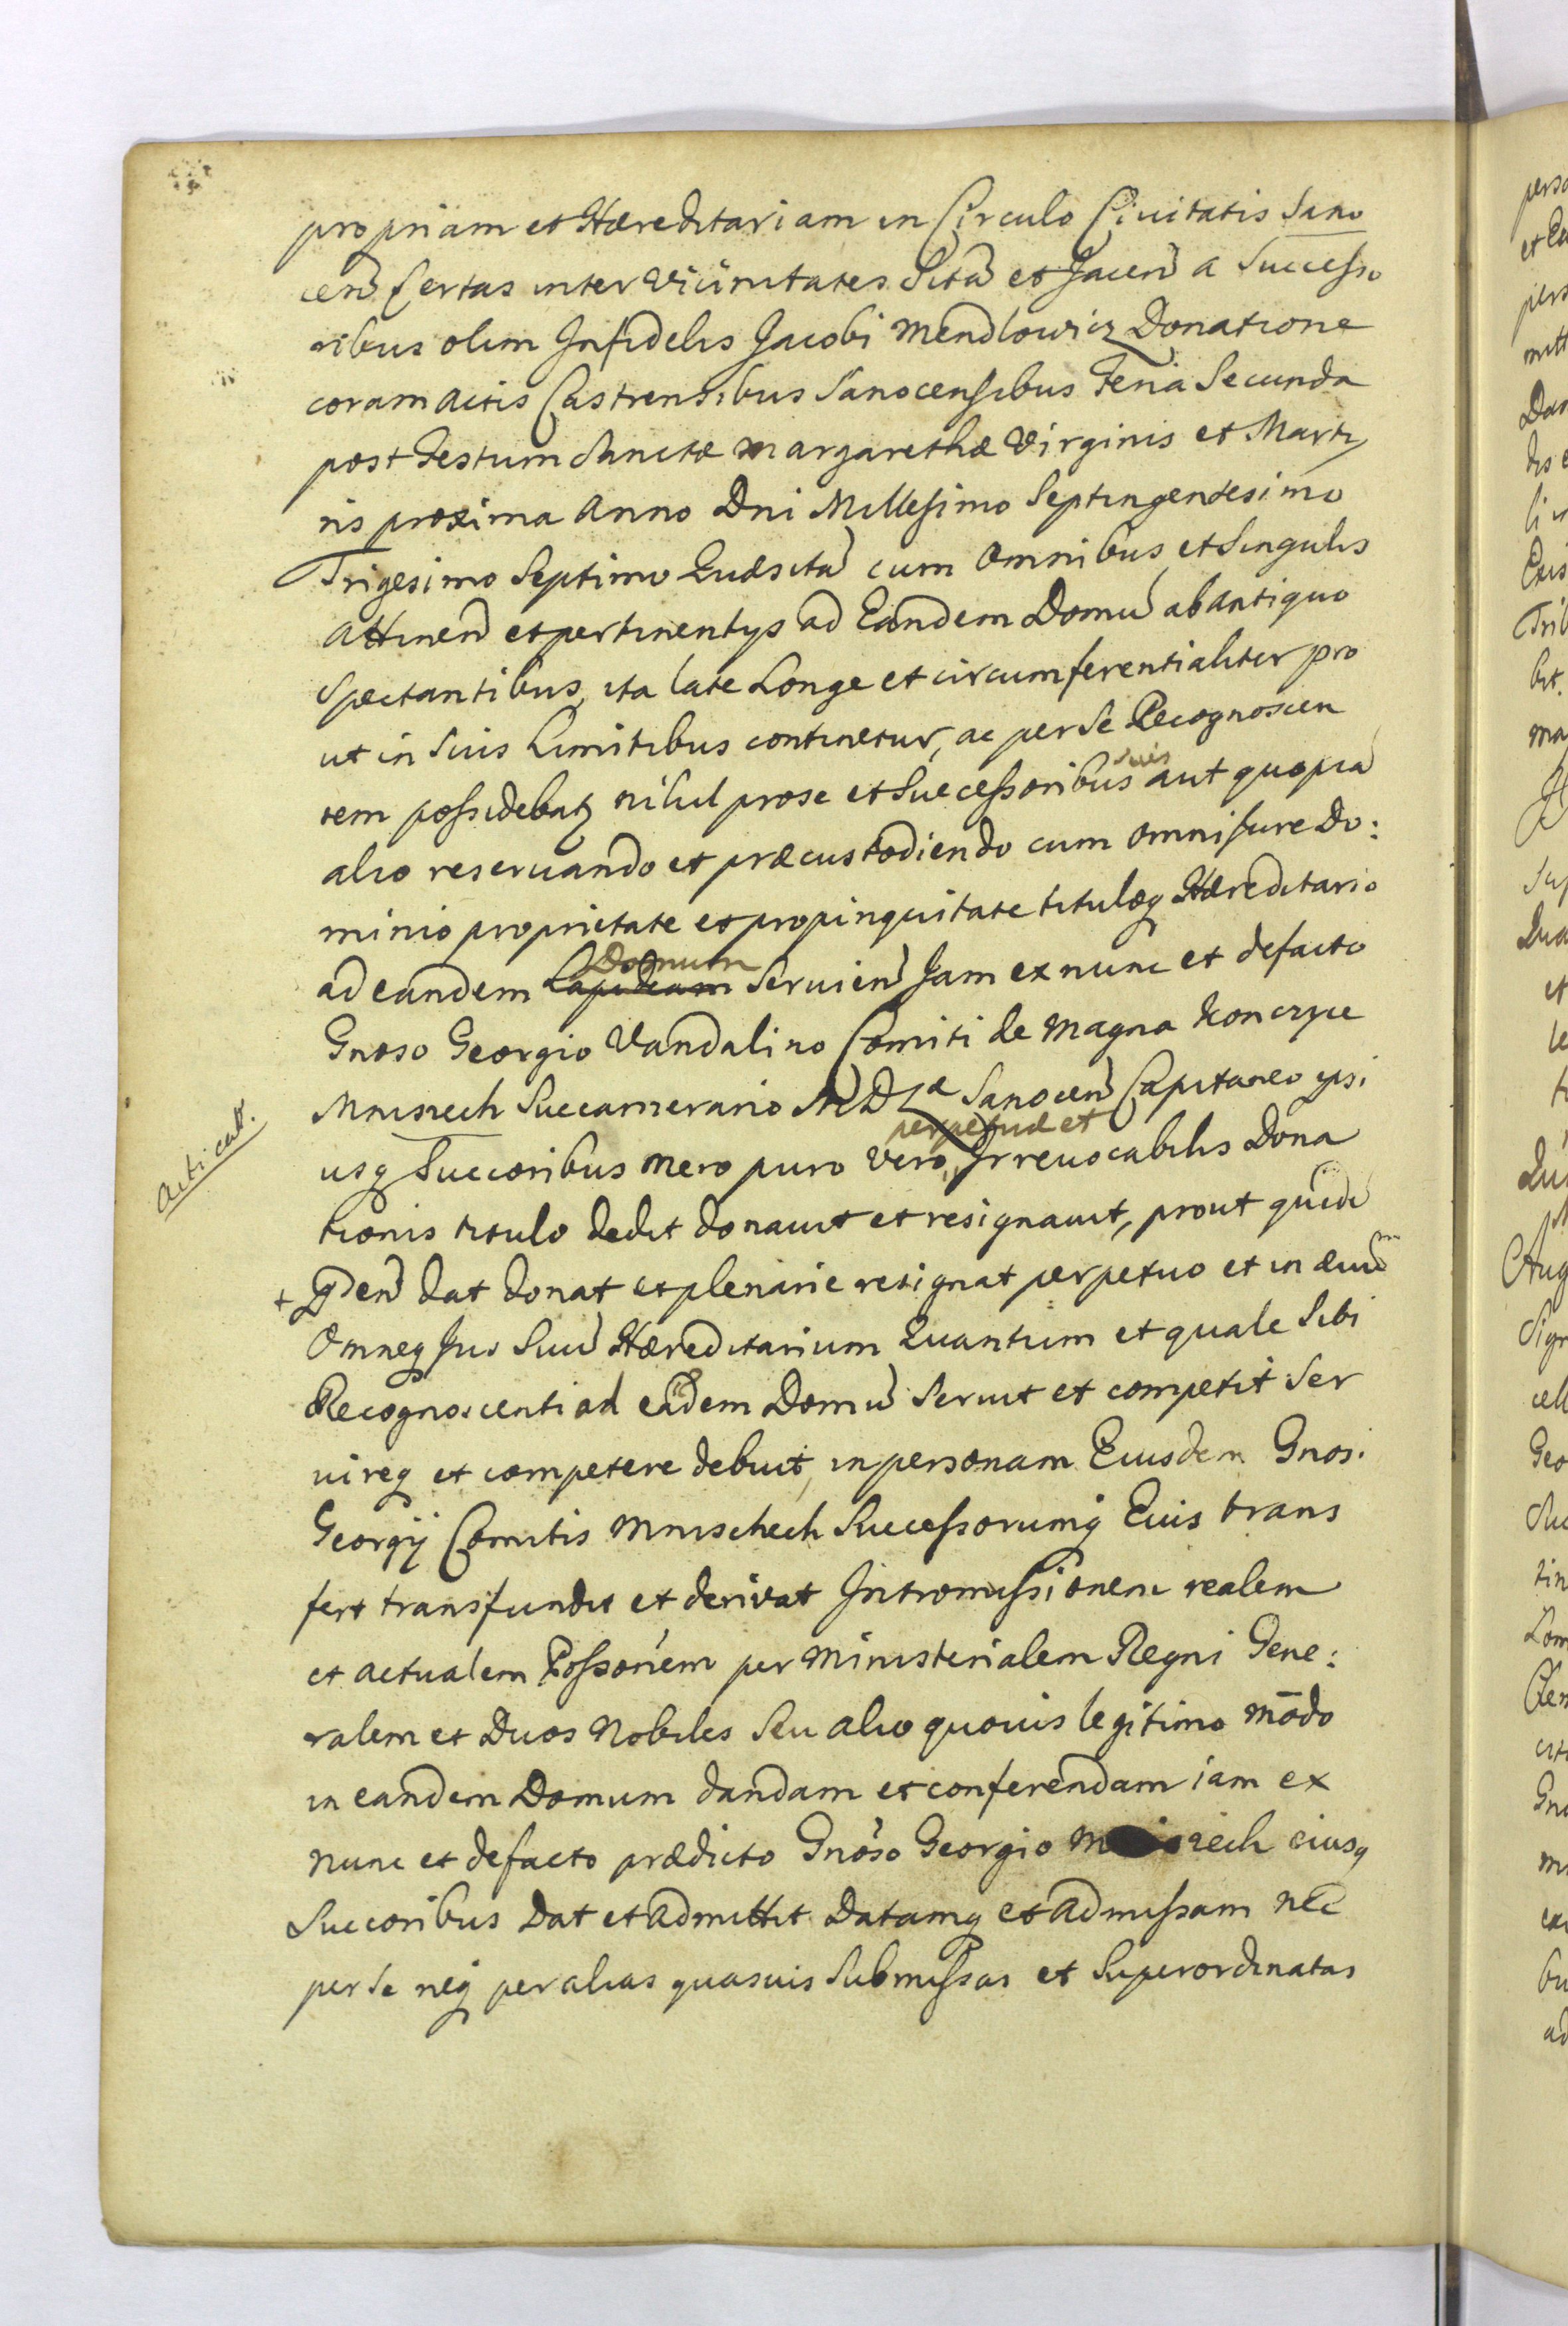 propriam et Hæreditariam in Circulo Civitatis Sano
cen̄ Certas inter Vicinitates Sitā et Jacen̄ a Successo
ribus olim Infidelis Jacobi Mendlowicz Donatione
coram actis Castrensibus Sanocensibus Feria Secunda
post Festum Sanctæ Margarethæ Virginis et Marty
ris proxima Anno Dni Millesimo Septingentesimo
Trigesimo Septimo Quæsitā cum Omnibus et Singulis
Attinen̄ et pertinentijs ad Eandem Domū ab Antiquo
Spectantibus, ita late Longe et circumferentialiter pro
ut in Suis Limitibus continetur, ac per Se Recognoscen
tem possidebatʒ nihil pro se et Successoribus suis aut quopiā
alio reservando et præcustodiendo cum omni jure Do:
minio proprietate et propinquitate tituloq Hæreditario
ad eandem Lapideam Domum Servien̄ Jam ex nunc et defacto
Gnoso Georgio Vandalino Comiti de Magna Konczyce
Mniszech Succamerario M D L^æ Sanocen̄ Capitaneo ipsi
usq Succoribus mero puro Vero, perpetuæ et Irrevocabilis Dona
Acticatt.
tionis titulo dedit donavit et resignavit, prout quidē
+ pden̄ dat donat et plenarie resignat perpetuo et in ævum
Omneq Jus Suū Hæreditarium Quantum et quale Sibi
Recognoscenti ad eādem Domū Servit et competit Ser
vireq et competere debuit, in personam Eiusdem Gnosi
Georgij Comitis Mnischech Successorumq Eius trans
fert transfundit et derivat Intromissionem realem
et actualem Possoñem per Ministerialem Regni Gene:
ralem et Duos Nobiles Seu alio quovis legitimo mōdo
in eandem Domum dandam et conferendam iam ex
nunc et defacto prædicto Gnõso Georgio Mniszech eiusq
Succoribus Dat et admittit Datamq et admissam nec
per se neq per alias quasvis Submissas et Superordinatas